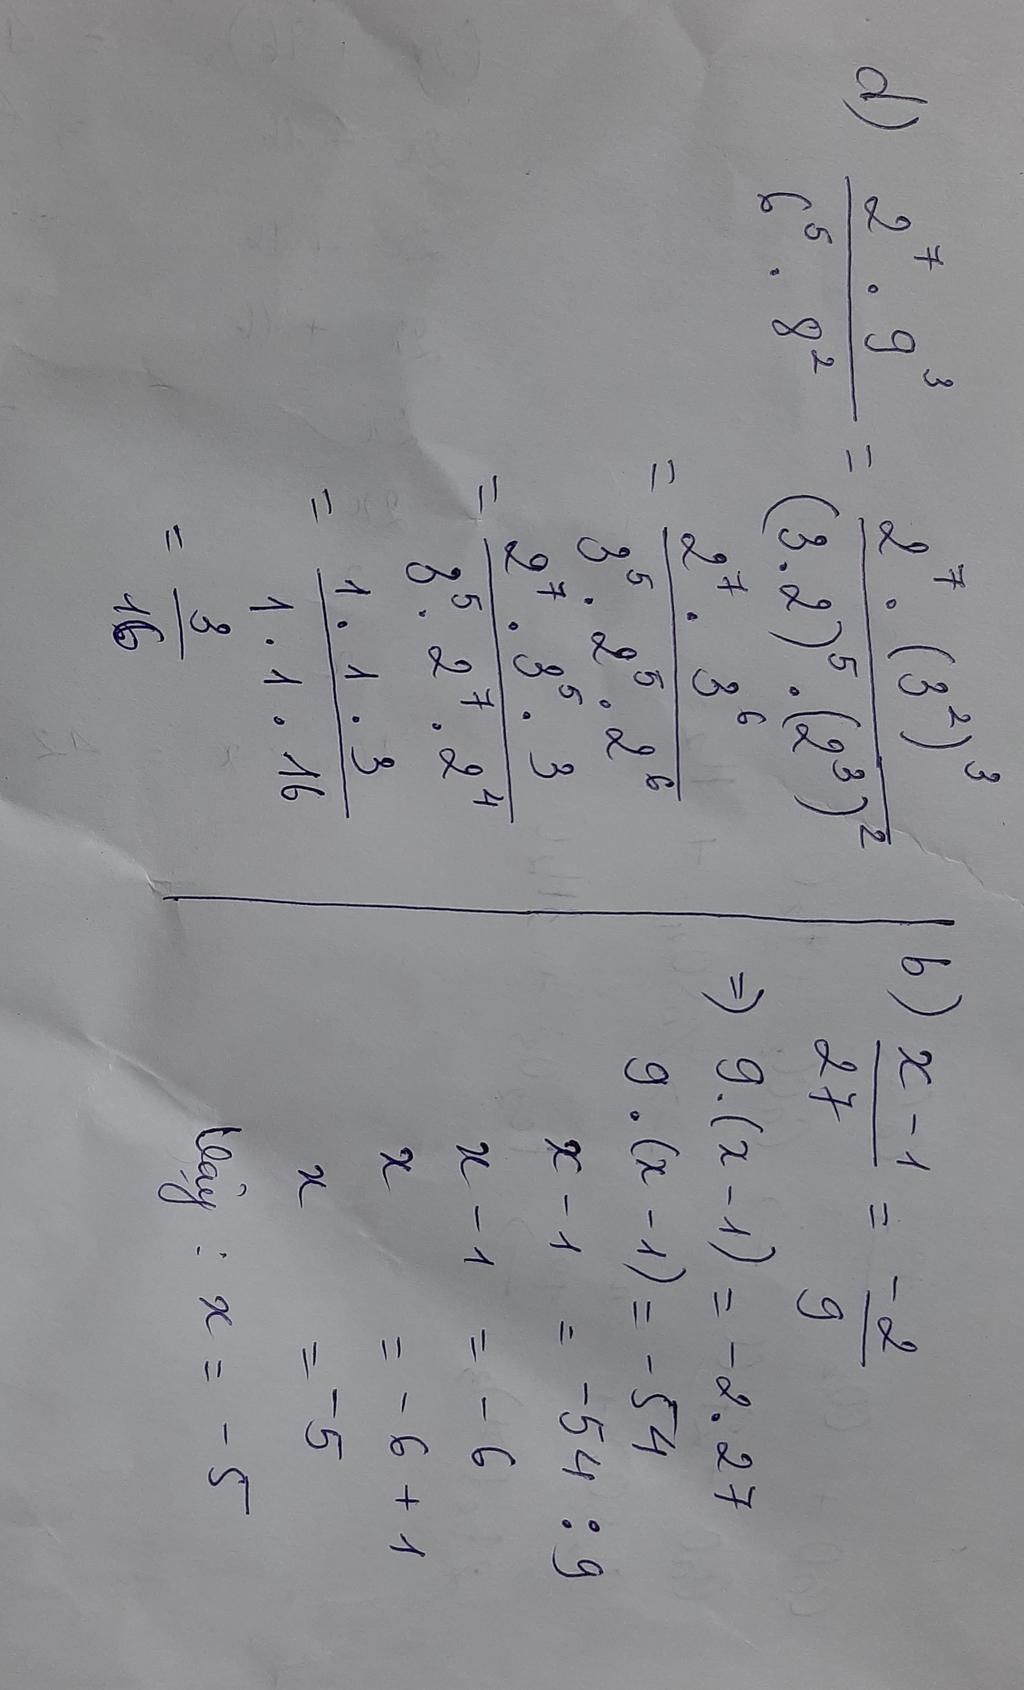 d) \frac{2^7 . 9^3}{6^5 . 8^2} = \frac{2^7 . (3^2)^3}{(3.2)^5 . (2^3)^2}
= \frac{2^7 . 3^6}{3^5 . 2^5 . 2^6}
= \frac{2^7 . 3^5 . 3}{3^5 . 2^7 . 2^4}
= \frac{1 . 1 . 3}{1 . 1 . 16}
= \frac{3}{16}
b) \frac{x - 1}{27} = \frac{-2}{9}
=> 9.(x - 1) = -2.27
9.(x - 1) = -54
x - 1 = -54 : 9
x - 1 = -6
x = -6 + 1
x = -5
Vậy : x = -5